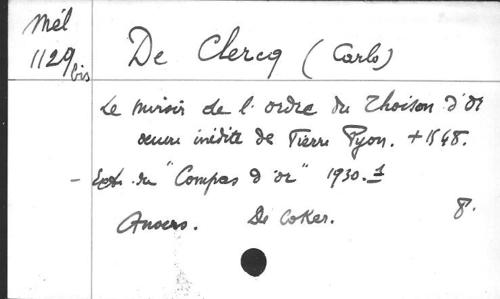 Mél
1129 bis
De Clercq (Carlo)
Le miroir de l'ordre du Thoison d'or
œuvre inédite de Pierre Pyon. +1548.
- Extr. du "Compas d'or" 1930. 1
Anvers. De Coker. 8°.